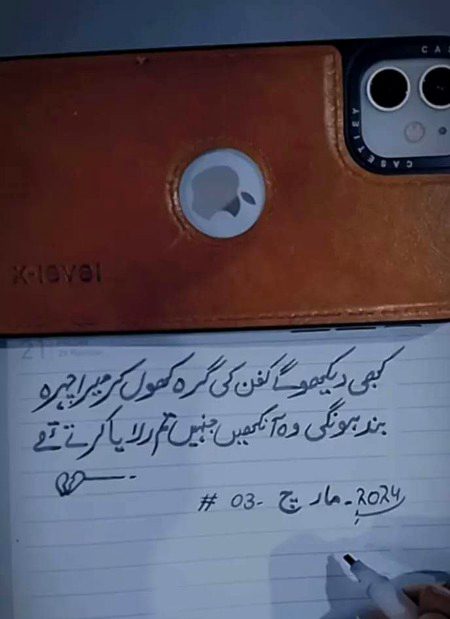 CASETIFY
X-level
21
کبھی دیکھو گے کفن کی گرہ کھول کر میرا چہرہ
بند ہونگی وہ آنکھیں جنہیں تم رلایا کرتے تھے
# 03- مارچ -2024